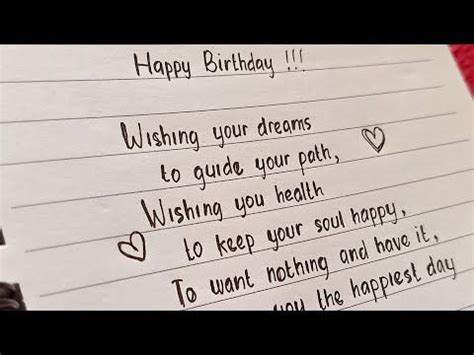 Happy Birthday !!!
Wishing your dreams
to guide your path,
Wishing you health
to keep your soul happy,
To want nothing and have it,
you the happiest day